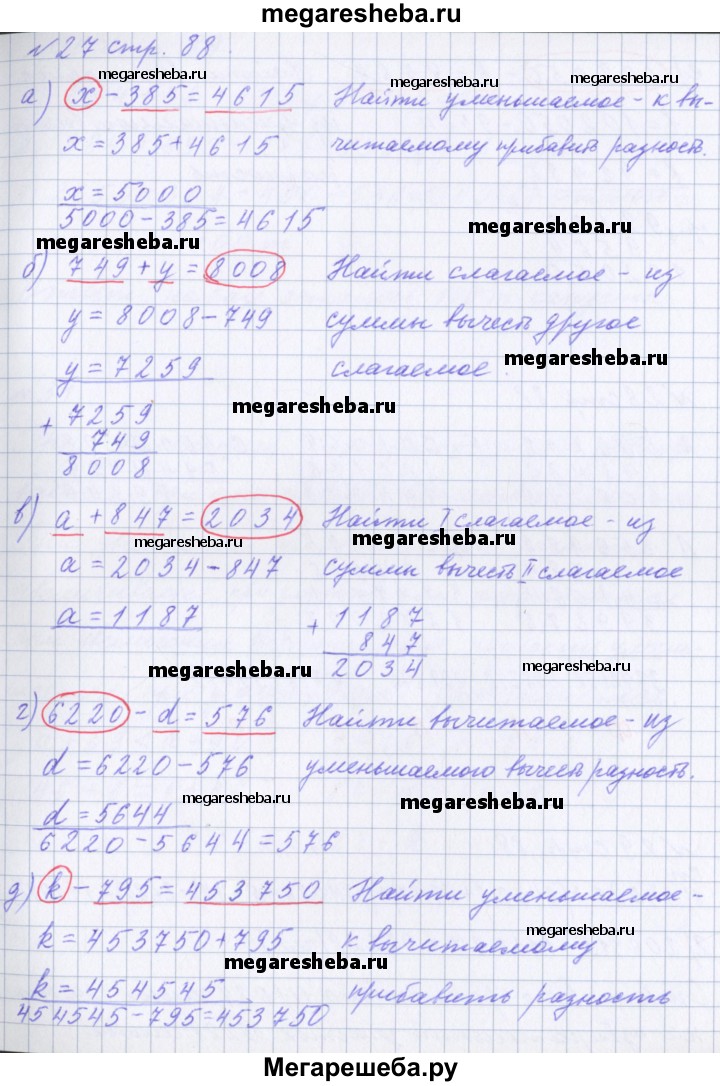 megaresheba.ru
№27 стр. 88.
megaresheba.ru megaresheba.ru megaresheba.ru
а) x - 385 = 4615 Найти уменьшаемое - к вы-
x = 385 + 4615 читаемому прибавить разность.
x = 5000
5000 - 385 = 4615 megaresheba.ru
megaresheba.ru
б) 749 + y = 8008 Найти слагаемое - из
y = 8008 - 749 суммы вычесть другое
megaresheba.ru
y = 7259 слагаемое.
megaresheba.ru
+ 7259
749
8008
в) a + 847 = 2034 Найти I слагаемое - из
megaresheba.ru megaresheba.ru
a = 2034 - 847 суммы вычесть II слагаемое
a = 1187 + 1187
847
2034
megaresheba.ru megaresheba.ru
г) 6220 - d = 576 Найти вычитаемое - из
d = 6220 - 576 уменьшаемого вычесть разность.
megaresheba.ru megaresheba.ru
d = 5644
6220 - 5644 = 576
д) k - 795 = 453750 Найти уменьшаемое -
megaresheba.ru
k = 453750 + 795 к вычитаемому
megaresheba.ru
k = 454545 прибавить разность
454545 - 795 = 453750
Мегарешеба.ру